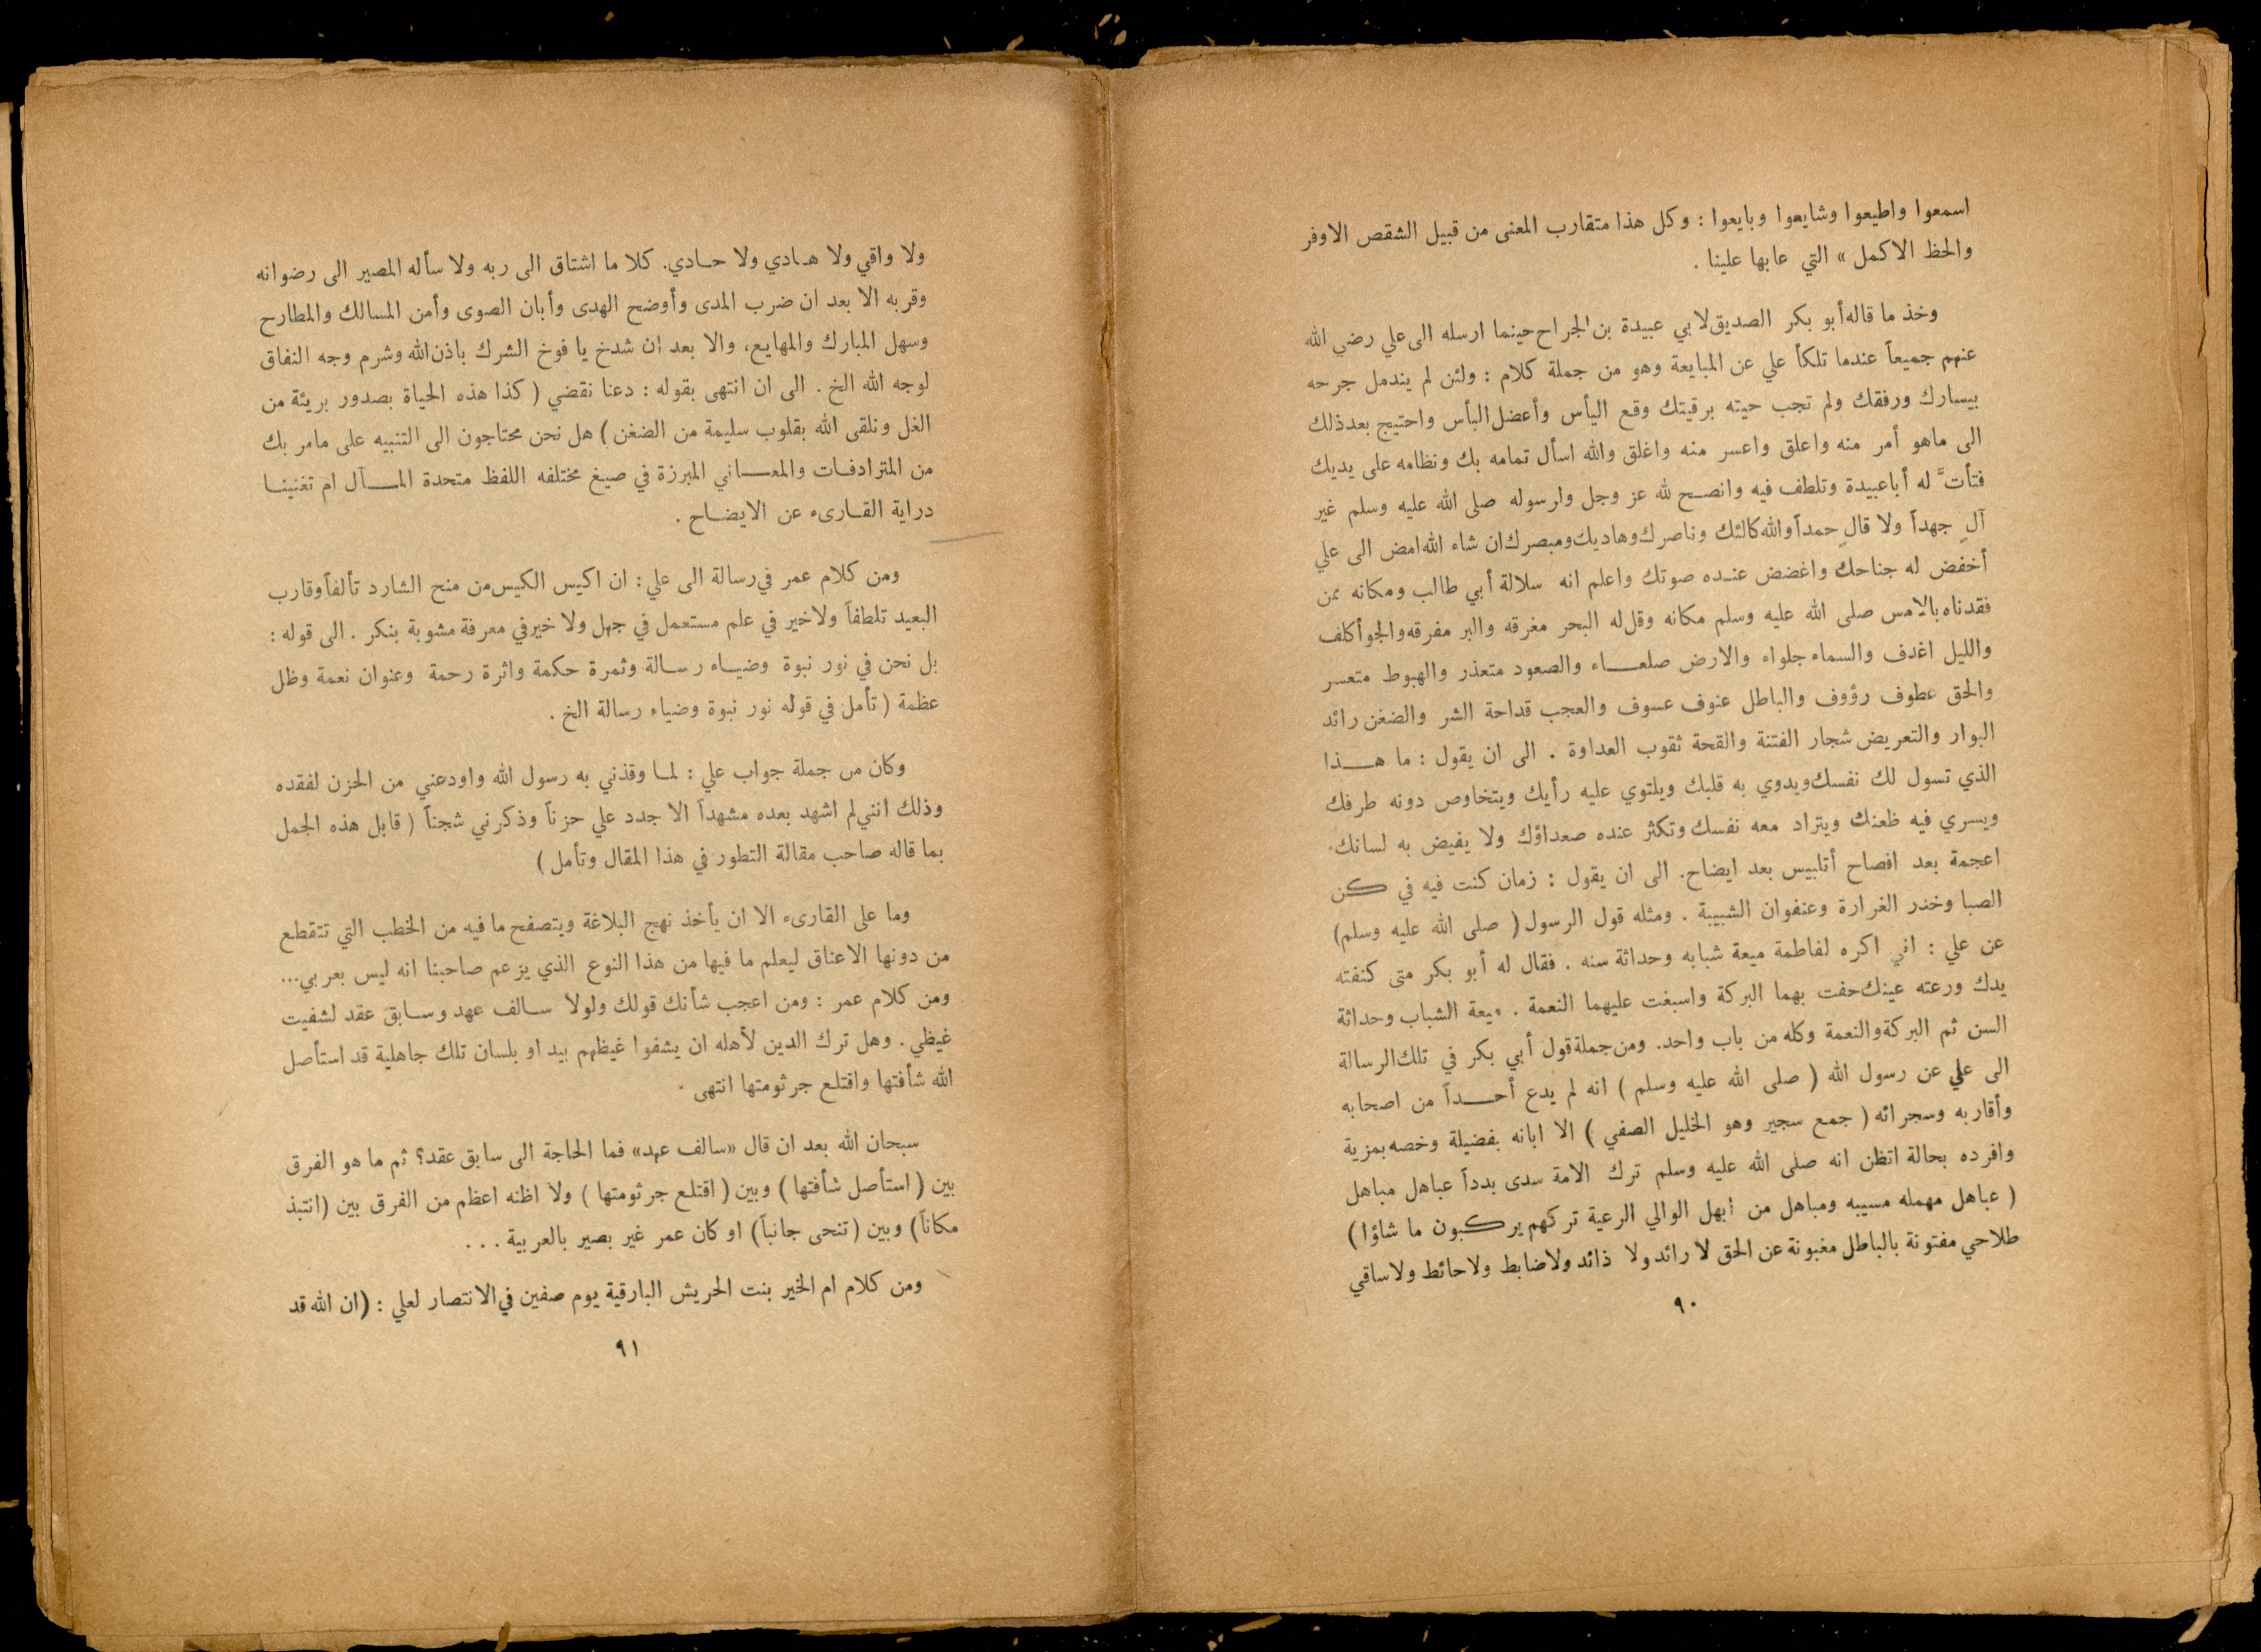 اسمعوا واطيعوا وشايعوا وبايعوا : وكل هذا متقارب المعنى من قبيل الشقص الاوفر
والحظ الاكمل » التي عابها علينا .
وخذ ما قاله أبو بكر الصديق لابي عبيدة بن الجراح حينما ارسله الى علي رضي الله
عنهم جميعاً عندما تلكأ علي عن المبايعة وهو من جملة كلام : ولئن لم يندمل جرحه
بيسارك ورفقك ولم تجب حيته برقيتك وقع اليأس وأعضل البأس واحتيج بعد ذلك
الى ماهو أمر منه واعلق واعسر منه واغلق والله اسأل تمامه بك ونظامه على يديك
فتأتَّ له أباعبيدة وتلطف فيه وانصح لله عز وجل وارسوله صلى الله عليه وسلم غير
آلٍ جهداً ولا قالٍ حمداً والله كالئك وناصرك وهاديك ومبصرك ان شاء الله امض الى علي
أخفض له جناحك واغضض عنده صوتك واعلم انه سلالة أبي طالب ومكانه ممن
فقدناه بالامس صلى الله عليه وسلم مكانه وقل له البحر مغرقه والبر مفرقه والجو أكلف
والليل اغدف والسماء جلواء والارض صلعاء والصعود متعذر والهبوط متعسر
والحق عطوف رؤوف والباطل عنوف عسوف والعجب قداحة الشر والضغن رائد
البوار والتعريض شجار الفتنة والقحة ثقوب العداوة . الى ان يقول : ما هذا
الذي تسول لك نفسك ويدوي به قلبك ويلتوي عليه رأيك ويتخاوص دونه طرفك
ويسري فيه ظعنك ويتراد معه نفسك وتكثر عنده صعداؤك ولا يفيض به لسانك .
اعجمة بعد افصاح أتلبيس بعد ايضاح . الى ان يقول : زمان كنت فيه في كن
الصبا وخذر الغرارة وعنفوان الشبيبة . ومثله قول الرسول ( صلى الله عليه وسلم )
عن علي : اني اكره لفاطمة ميعة شبابه وحداثة سنه . فقال له أبو بكر متى كنفته
يدك ورعته عينك حفت بهما البركة واسبغت عليهما النعمة . ميعة الشباب وحداثة
السن ثم البركة والنعمة وكله من باب واحد . ومن جملة قول أبي بكر في تلك الرسالة
الى علي عن رسول الله ( صلى الله عليه وسلم ) انه لم يدع أحداً من اصحابه
وأقاربه وسجرائه ( جمع سجير وهو الخليل الصفي ) الا ابانه بفضيلة وخصه بمزية
وافرده بحالة اتظن انه صلى الله عليه وسلم ترك الامة سدى بدداً عباهل مباهل
( عباهل مهمله مسيبه ومباهل من أبهل الوالي الرعية تركهم يركبون ما شاؤا )
طلاحي مفتونة بالباطل مغبونة عن الحق لا رائد ولا ذائد ولاضابط ولاحائط ولاساقي
٩٠
ولا واقي ولا هادي ولا حادي . كلا ما اشتاق الى ربه ولا سأله المصير الى رضوانه
وقربه الا بعد ان ضرب المدى وأوضح الهدى وأبان الصوى وأمن المسالك والمطارح
وسهل المبارك والمهايع ، والا بعد ان شدخ يا فوخ الشرك باذن الله وشرم وجه النفاق
لوجه الله الخ . الى ان انتهى بقوله : دعنا نقضي ( كذا هذه الحياة بصدور بريئة من
الغل ونلقى الله بقلوب سليمة من الضغن ) هل نحن محتاجون الى التنبيه على مامر بك
من المترادفات والمعاني المبرزة في صيغ مختلفه اللفظ متحدة المآل ام تغنينا
دراية القارىء عن الايضاح .
ومن كلام عمر في رسالة الى علي : ان اكيس الكيس من منح الشارد تألفاً وقارب
البعيد تلطفاً ولاخير في علم مستعمل في جهل ولا خير في معرفة مشوبة بنكر . الى قوله :
بل نحن في نور نبوة وضياء رسالة وثمرة حكمة واثرة رحمة وعنوان نعمة وظل
عظمة ( تأمل في قوله نور نبوة وضياء رسالة الخ .
وكان من جملة جواب علي : لما وقذني به رسول الله واودعني من الحزن لفقده
وذلك انني لم اشهد بعده مشهداً الا جدد علي حزناً وذكرني شجناً ( قابل هذه الجمل
بما قاله صاحب مقالة التطور في هذا المقال وتأمل )
وما على القارىء الا ان يأخذ نهج البلاغة ويتصفح ما فيه من الخطب التي تتقطع
من دونها الاعناق ليعلم ما فيها من هذا النوع الذي يزعم صاحبنا انه ليس بعربي...
ومن كلام عمر : ومن اعجب شأنك قولك ولولا سالف عهد وسابق عقد لشفيت
غيظي . وهل ترك الدين لأهله ان يشفوا غيظهم بيد او بلسان تلك جاهلية قد استأصل
الله شأفتها واقتلع جرثومتها انتهى .
سبحان الله بعد ان قال «سالف عهد» فما الحاجة الى سابق عقد؟ ثم ما هو الفرق
بين ( استأصل شأفتها ) وبين ( اقتلع جرثومتها ) ولا اظنه اعظم من الفرق بين (انتبذ
مكاناً ) وبين ( تنحى جانباً ) او كان عمر غير بصير بالعربية . . .
ومن كلام ام الخير بنت الحريش البارقية يوم صفين في الانتصار لعلي : (ان الله قد
٩١